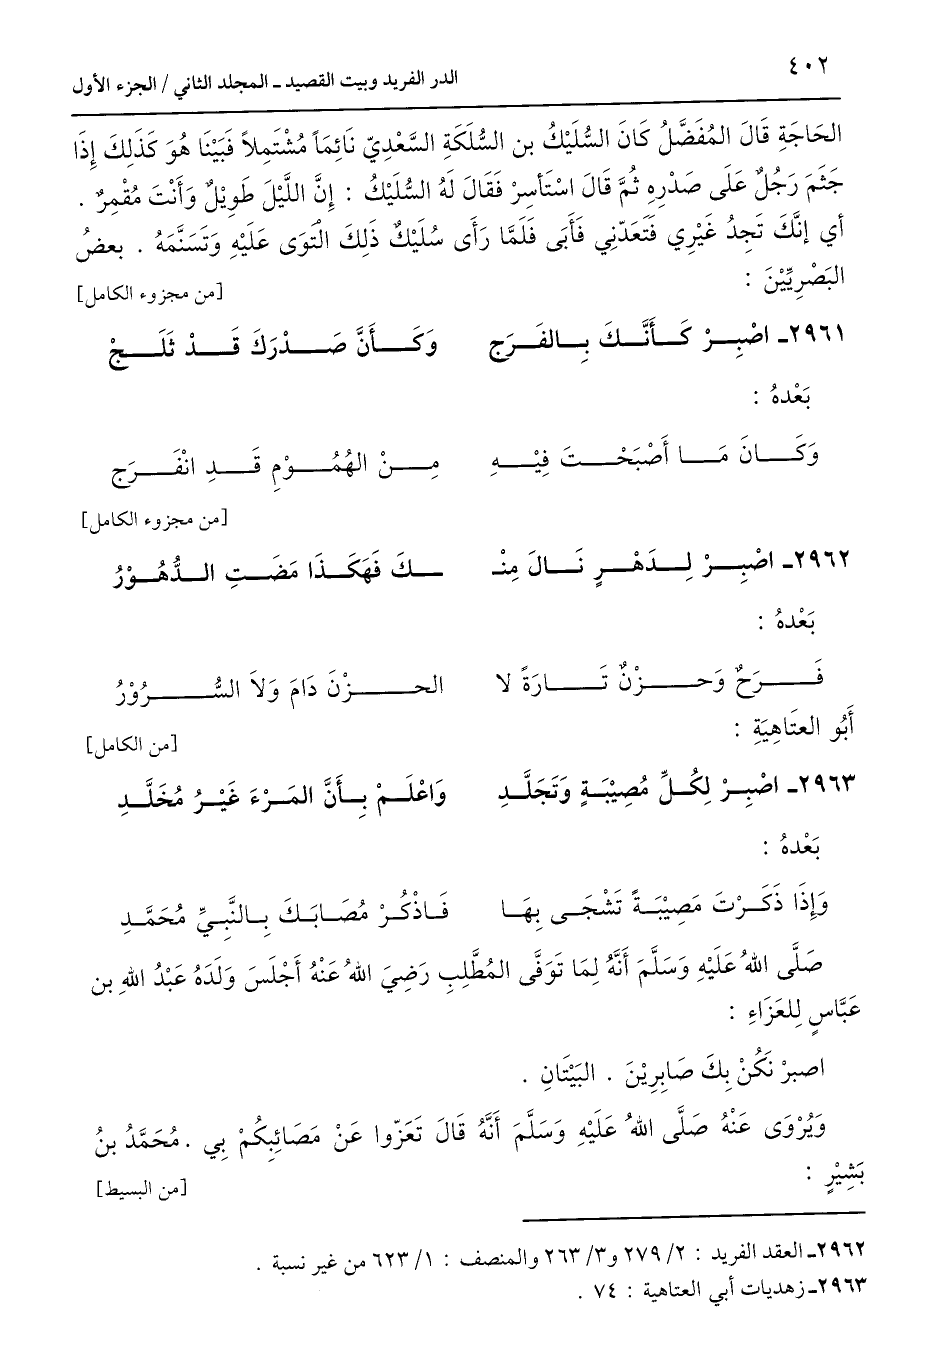 ٤٠٢
الدر الفريد وبيت القصيد ـ المجلد الثاني / الجزء الأول
الحَاجَةِ قَالَ المُفَضَّلُ كَانَ السُّلَيْكُ بن السُّلَكَةِ السَّعْدِيّ نَائِمَاً مُشْتَمِلاً فَبَيْنَا هُوَ كَذَلِكَ إِذَا
جَثَمَ رَجُلٌ عَلَى صَدْرِهِ ثُمَّ قَالَ اسْتَأسِرْ فَقَالَ لَهُ السُّلَيْكُ : إِنَّ اللَّيْلَ طَوِيْلٌ وَأَنْتَ مُقْمِرٌ .
أي إِنَّكَ تَجِدُ غَيْرِي فَتَعَدّنِي فَأَبَى فَلَمَّا رَأَى سُلَيْكٌ ذَلِكَ الْتَوَى عَلَيْهِ وَتَسَنَّمَهُ . بعضُ
البَصْرِيِّيْنَ :
[من مجزوء الكامل]
٢٩٦١ـ اصْبِرْ كَأَنَّكَ بِالفَرَجِ وَكَأَنَّ صَدْرَكَ قَدْ ثَلَجْ
بَعْدهُ :
وَكَانَ مَا أَصْبَحْتَ فِيْهِ مِنْ الهُمُوْمِ قَدِ انْفَرَج
[من مجزوء الكامل]
٢٩٦٢ـ اصْبِرْ لِدَهْرٍ نَالَ مِنْـ ـكَ فَهكَذَا مَضَتِ الدُّهُوْرُ
بَعْدهُ :
فَرَحٌ وَحزْنٌ تَارَةً لا الحزْنَ دَامَ وَلاَ السُّرُوْرُ
أَبُو العتَاهِيَةِ :
[من الكامل]
٢٩٦٣ـ اصْبِرْ لِكُلِّ مُصِيْبَةٍ وَتَجَلَّدِ وَاعْلَمْ بِأَنَّ المَرْءَ غَيْرُ مُخَلَّدِ
بَعْدهُ :
وَإِذَا ذَكَرْتَ مَصِيْبَةً تَشْجَى بِهَا فَاذْكُرْ مُصَابَكَ بِالنَّبِيِّ مُحَمَّدِ
صَلَّى اللهُ عَلَيْهِ وَسَلَّمَ أَنَّهُ لِمَا تَوَفَّى المُطَّلِب رَضِيَ اللهُ عَنْهُ أَجْلَسَ وَلَدَهُ عَبْدُ اللهِ بن
عَبَّاسٍ لِلعَزَاءِ :
اصبرْ نَكُنْ بِكَ صَابِرِيْنَ . البَيْتَانِ .
وَيُرْوَى عَنْهُ صَلَّى اللهُ عَلَيْهِ وَسَلَّمَ أَنَّهُ قَالَ تَعَزّوا عَنْ مَصَائِبِكُمْ بِي . مُحَمَّدُ بنُ
بَشِيْرٍ :
[من البسيط]
٢٩٦٢ـ العقد الفريد : ٢/ ٢٧٩ و٣/ ٢٦٣ والمنصف : ١/ ٦٢٣ من غير نسبة .
٢٩٦٣ـ زهديات أبي العتاهية : ٧٤ .